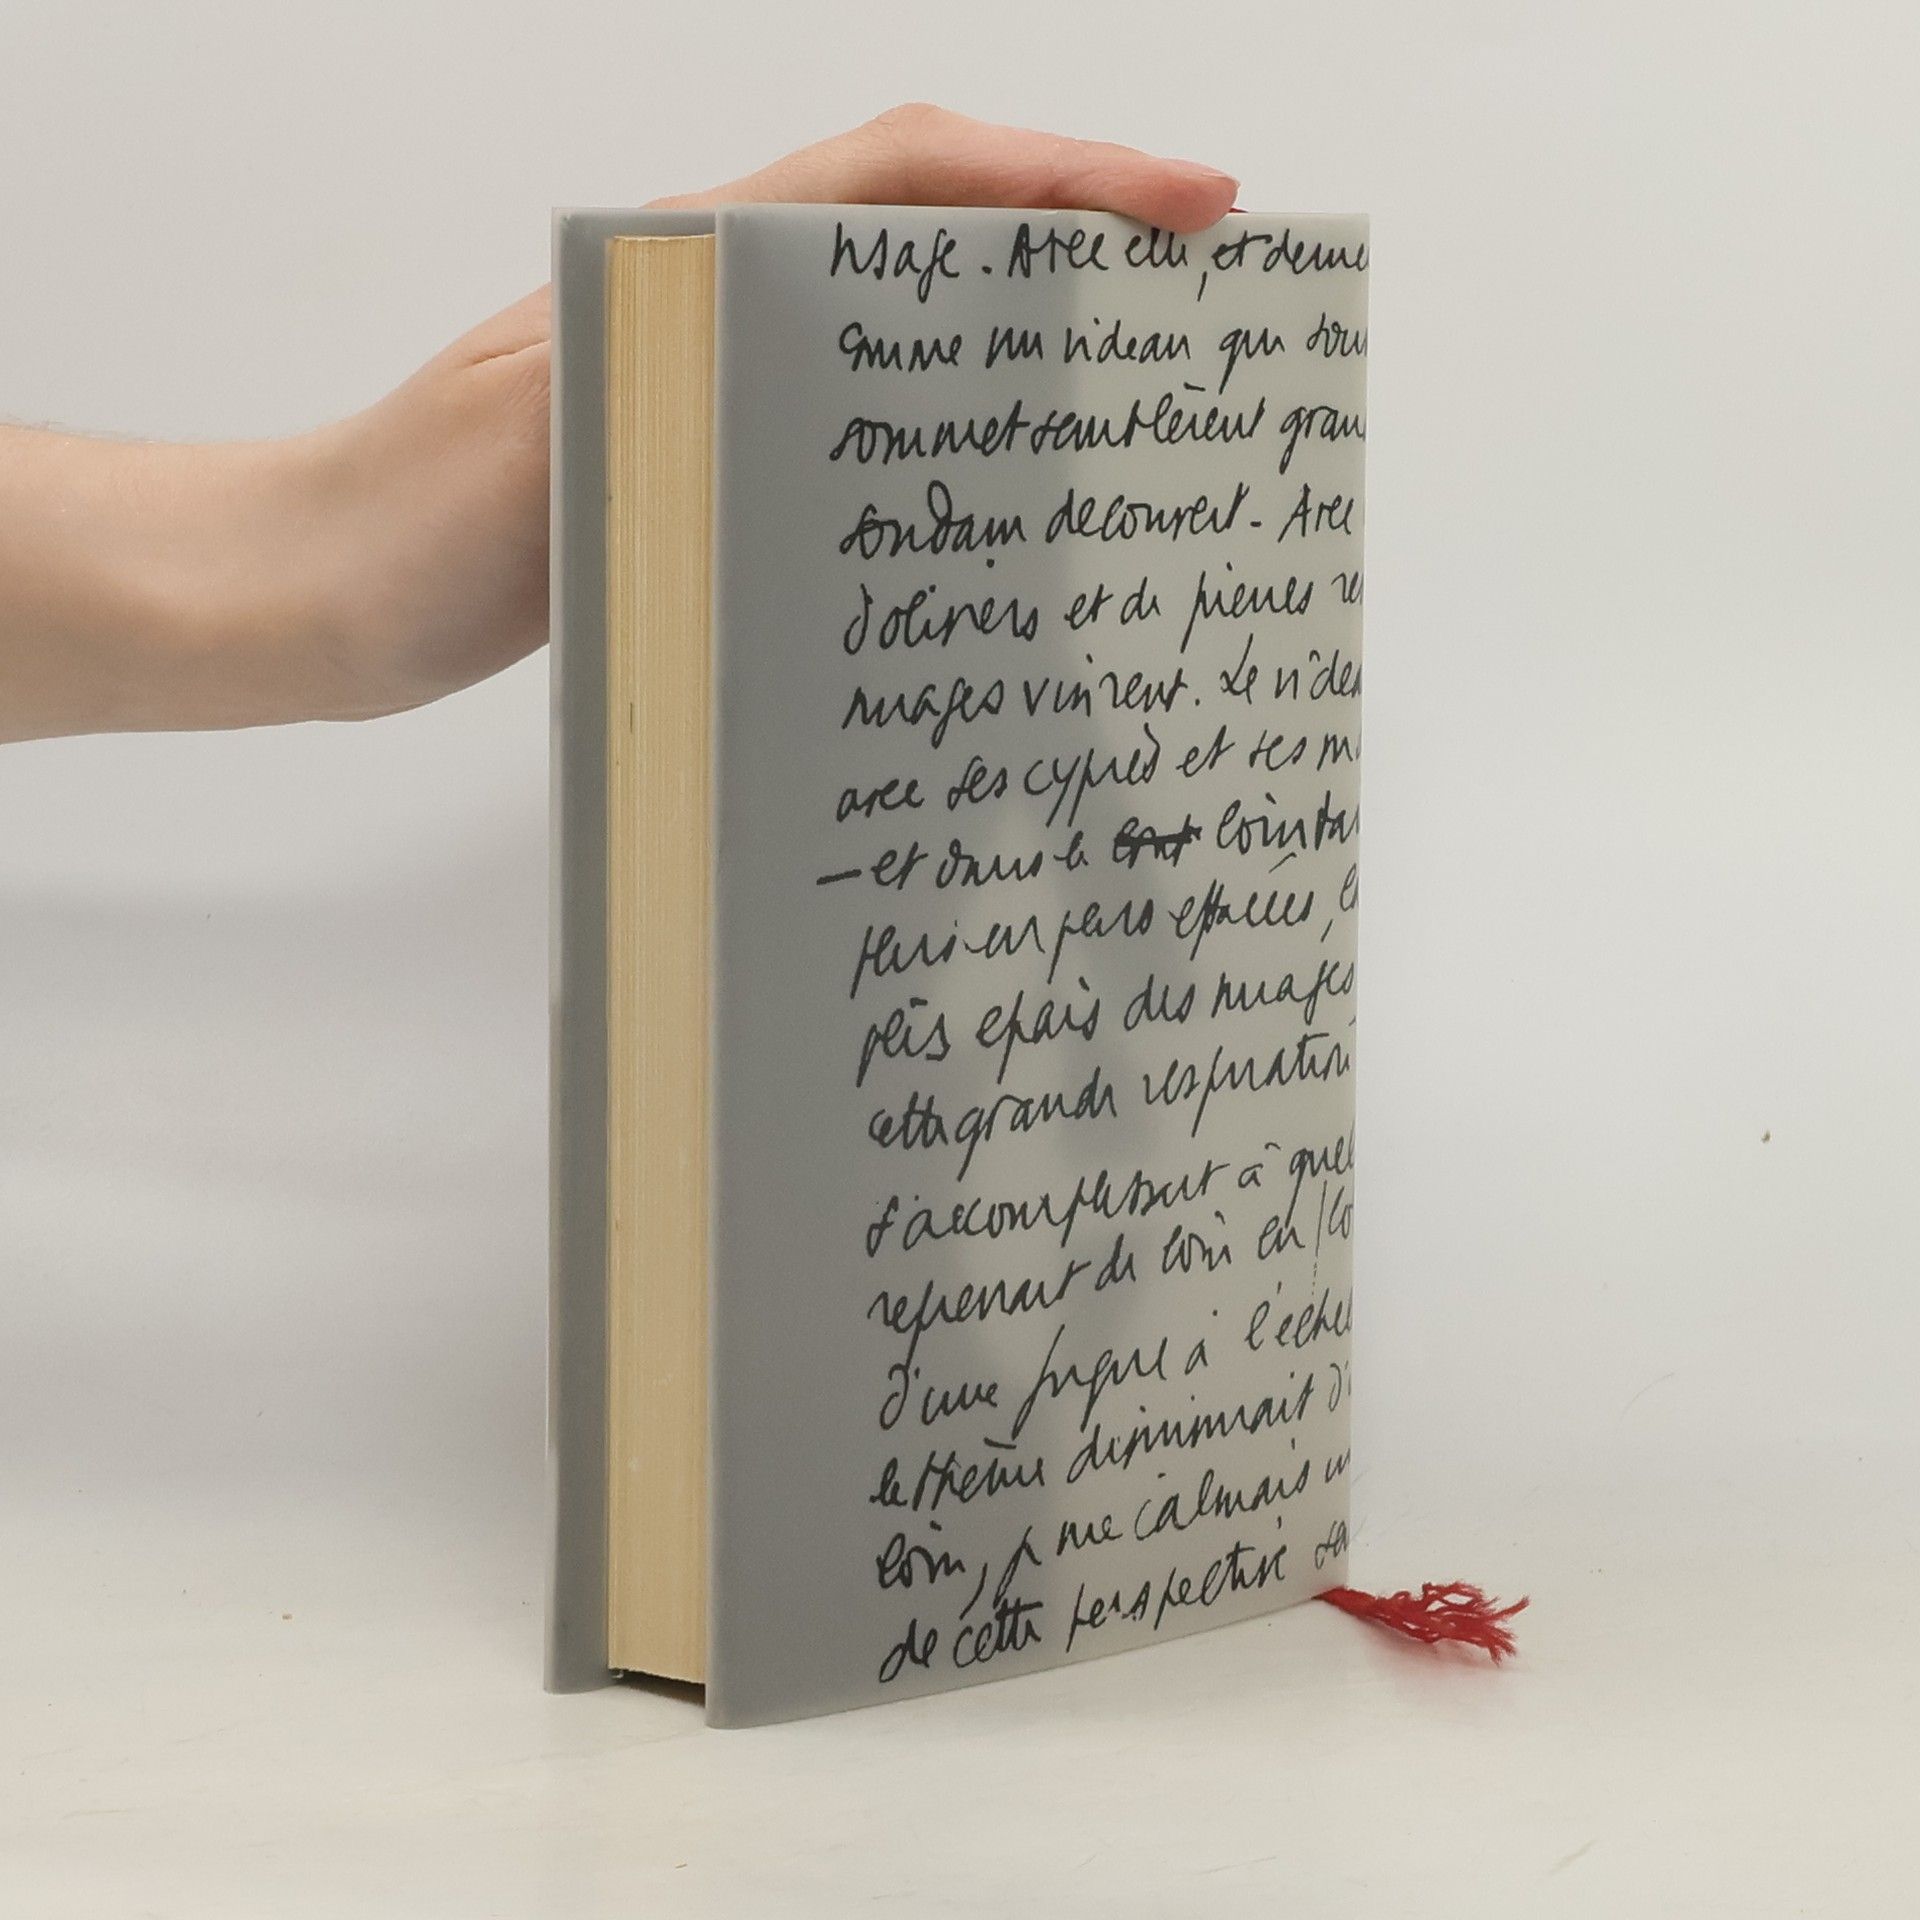 visage. Avec elle, et deme
comme un rideau qui sou
sommet semblèrent gran
soudain decouvert - Avec
d'oliviers et de pierres re
nuages vinrent. Le ride
avec ses cyprès et ses m
— et dans le lointai
plus en plus effacées,
plus épais des nuages
cette grande respiratio
s'accomplissait à quel
reprenait de loin en lo
d'une fugue à l'échel
le thème diminuait d'
loin, je me calmais
de cette perspective sa